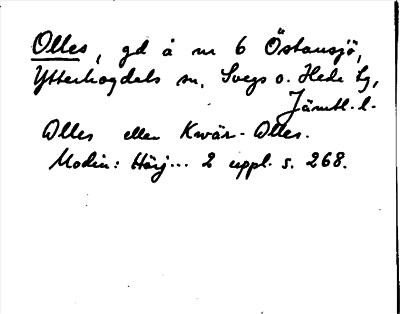 Olles, gd å nr 6 Östansjö,
Ytterhogdals sn, Svegs o. Hede tg,
Jämtl. l.
Olles eller Kwär-Olles.
Modin: Härj... 2 uppl. s. 268.